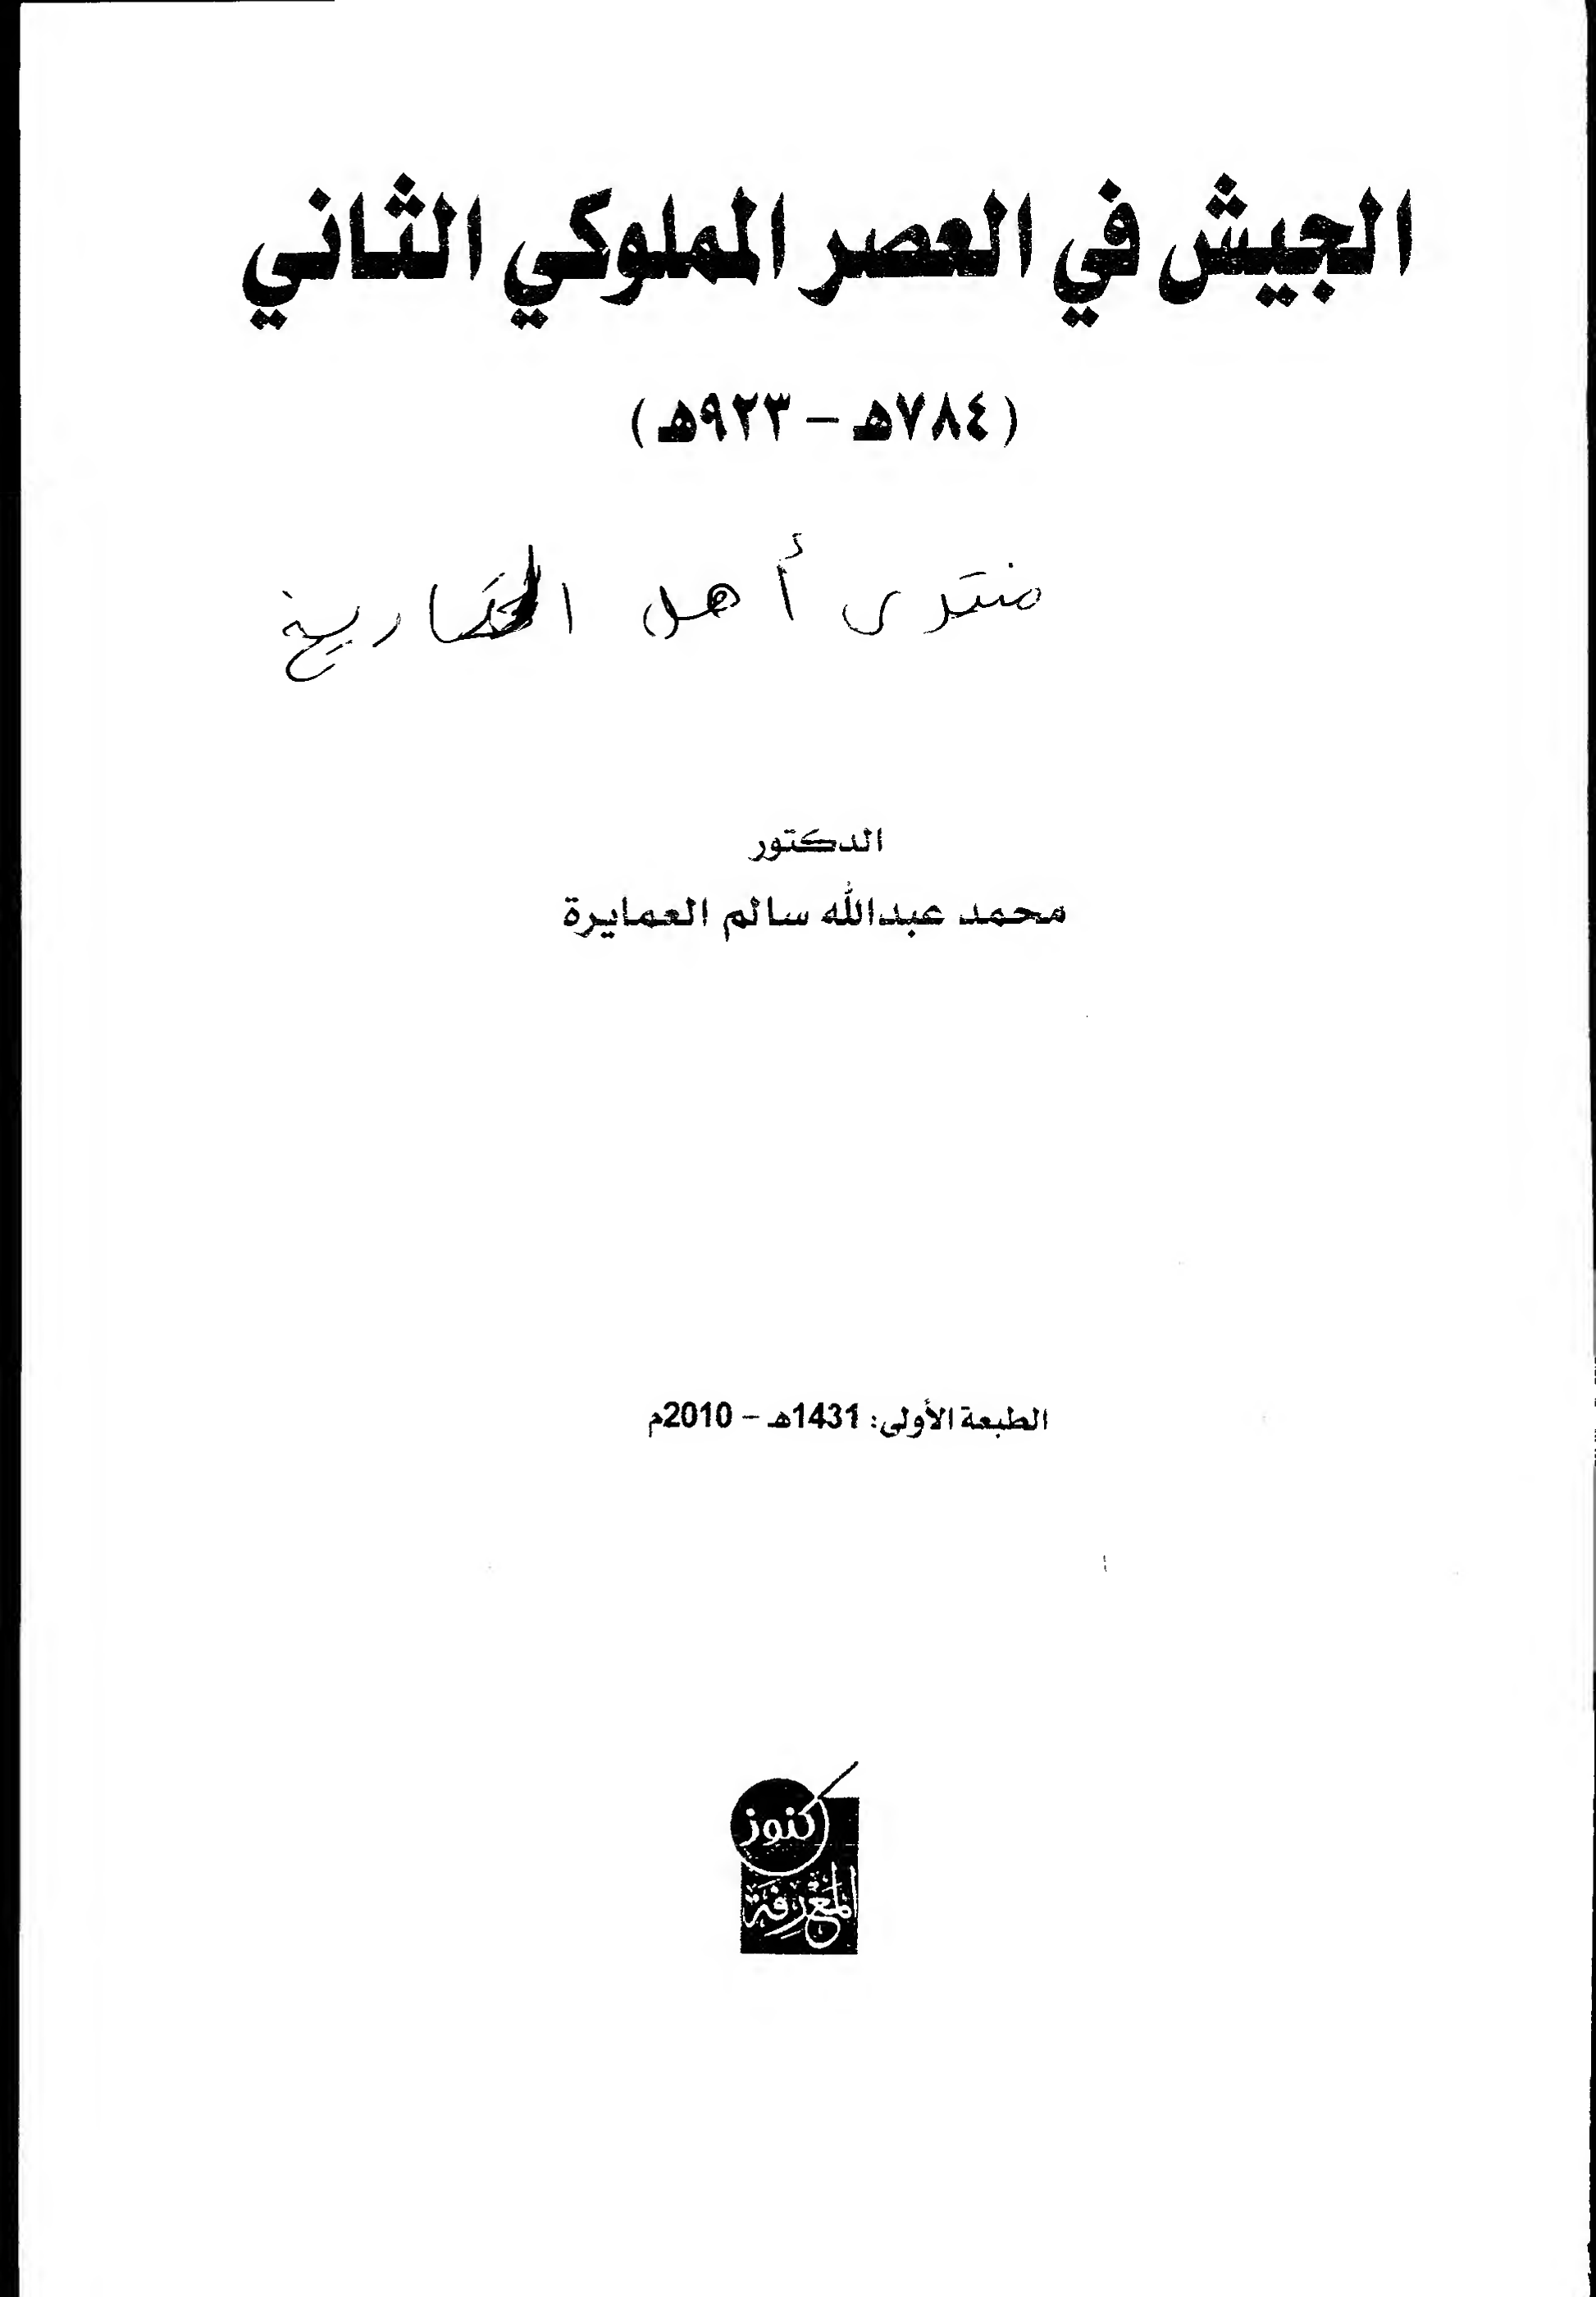 الجيش في العصر المملوكي الثاني
(٧٨٤هـ – ٩٢٣هـ)
منتدى أهل التاريخ
الدكتور
محمد عبدالله سالم العمايرة
الطبعة الأولى: 1431هـ – 2010م
كنوز
المعرفة